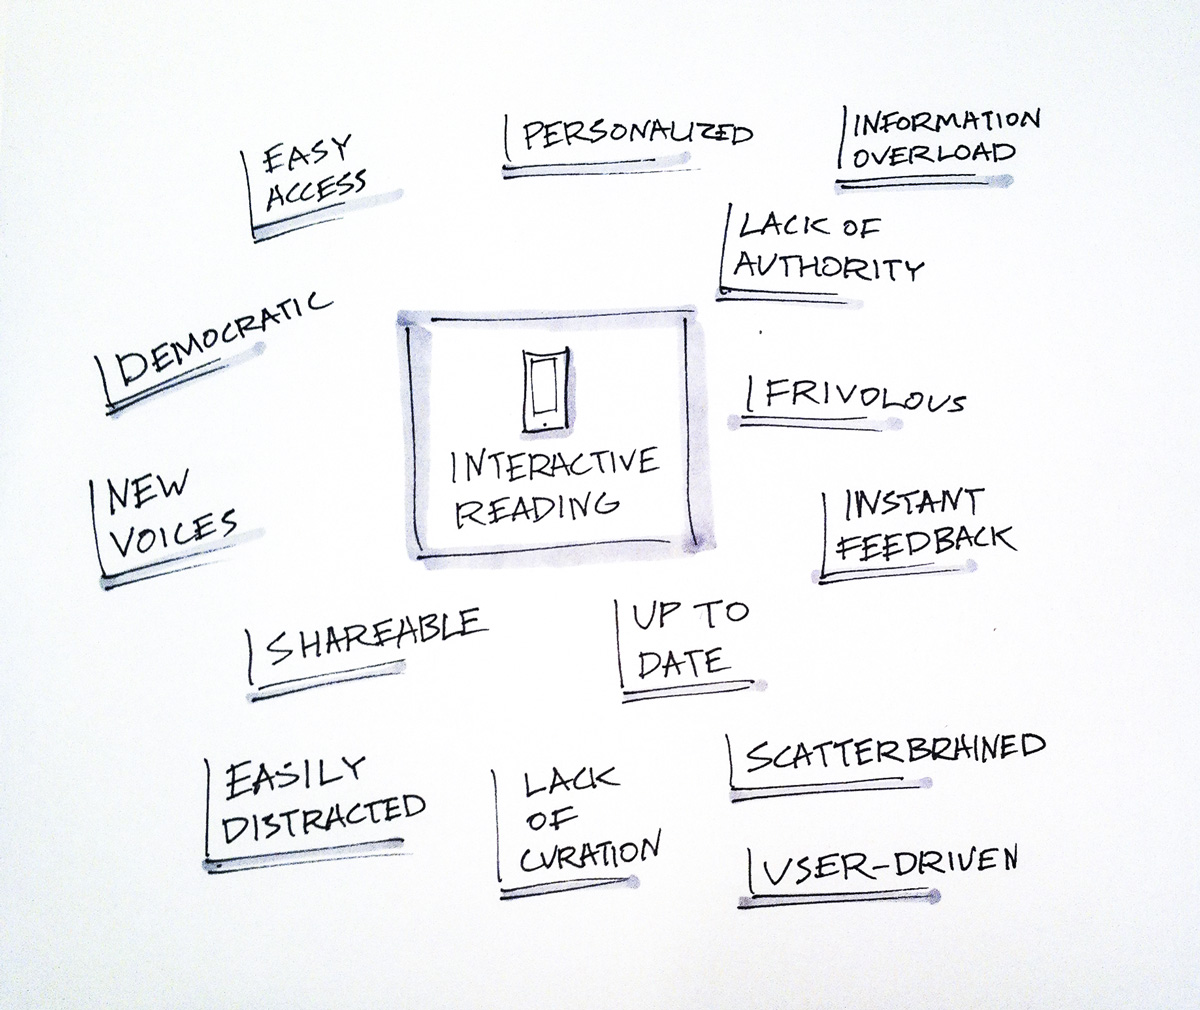 EASY
ACCESS
PERSONALIZED
INFORMATION
OVERLOAD
LACK OF
AUTHORITY
DEMOCRATIC
FRIVOLOUS
INTERACTIVE
READING
NEW
VOICES
INSTANT
FEEDBACK
SHAREABLE
UP TO
DATE
EASILY
DISTRACTED
LACK
OF
CURATION
SCATTERBRAINED
USER-DRIVEN